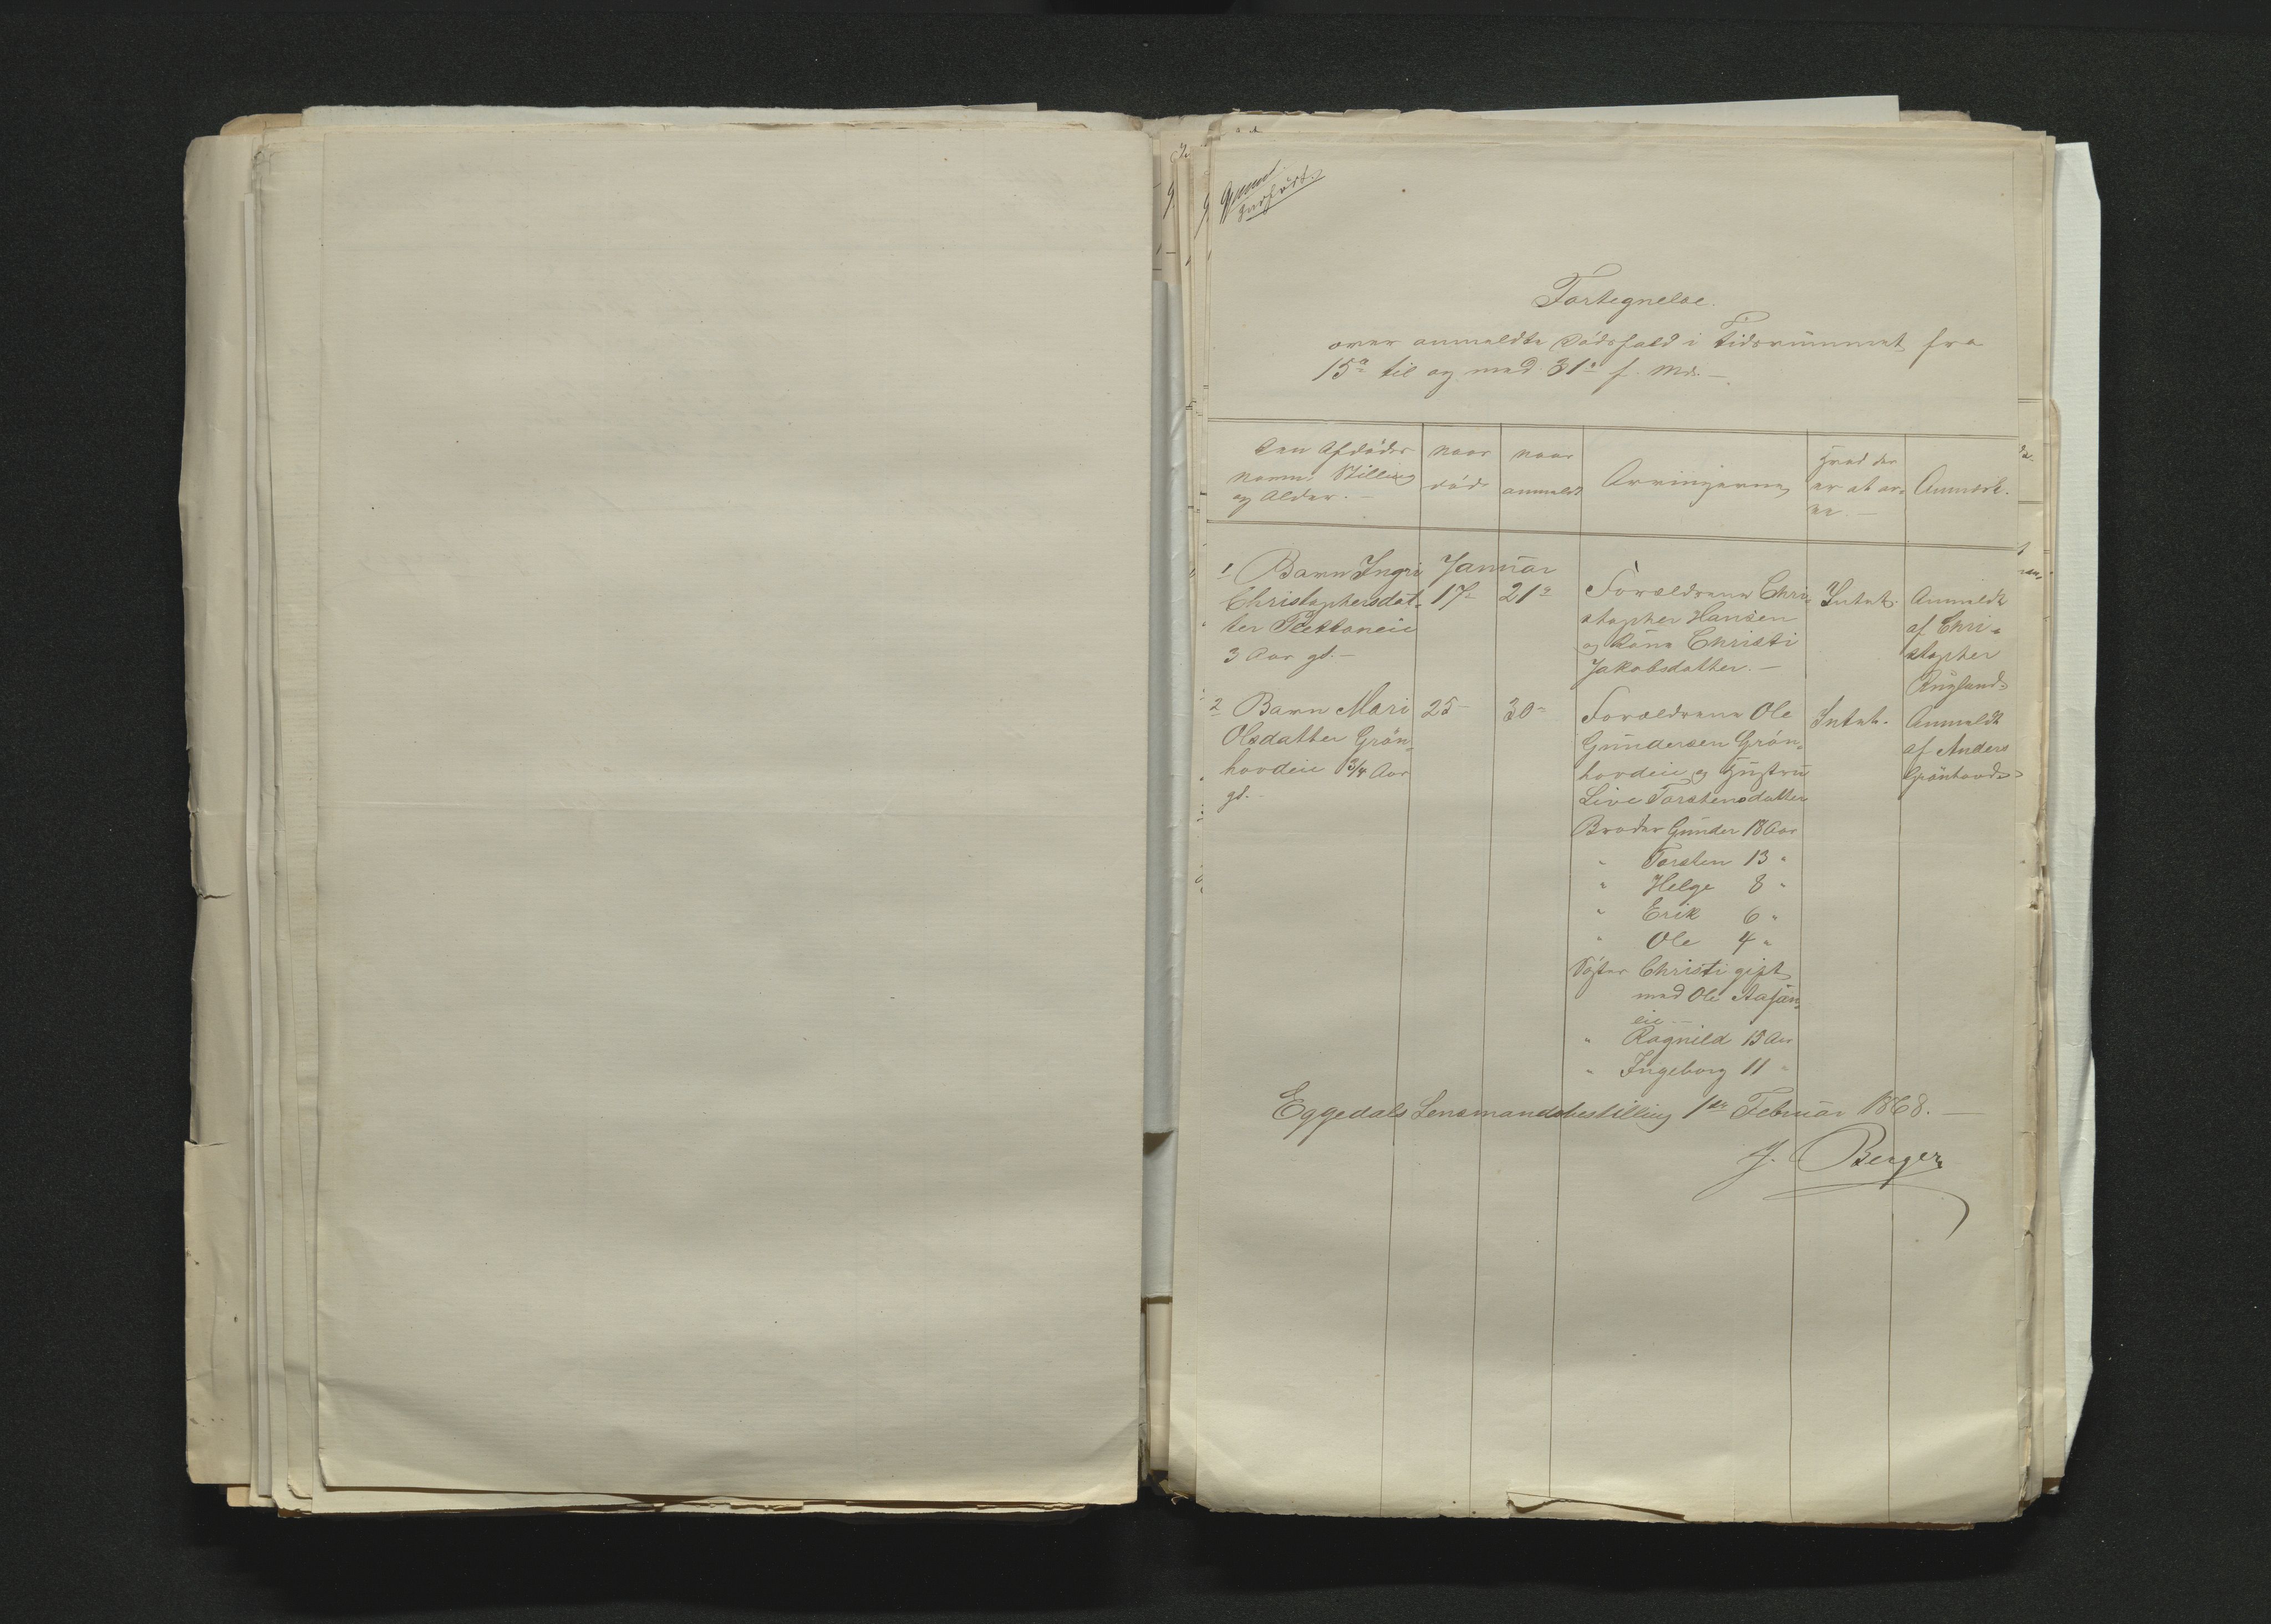 Fortegnelse.
over anmeldte Dödsfald i Tidsrummet fra
15de til og med 31te f. Md. –
Den Afdödes
Navn, Stilling
og Alder. –
Naar
död
Naar
anmeldt
Arvingerne
Hvad der
er at ar-
ve. –
Anmærk.
Januar
1 Barn Ingri
Christophersdat-
ter Plettaneie
3 Aar gl. –
17de
21de
Forældrene Chri-
stopher Hansen
og Kone Christi
Jakobsdatter. –
Intet.
Anmeldt
af Chri-
stopher
Rugland
2 Barn Mari
Olsdatter Grön-
hovdeie 3/4 Aar
gl. –
25
30te
Forældrene Ole
Gundersen Grön-
hovdeie og Hustru
Live Torstensdatter
Broder Gunder 18 Aar
" Torsten 13 "
" Helge 8 "
" Erik 6 "
" Ole 4 "
Söster Christi gift
med Ole
eie –
" Ragnild 15 Aar
" Ingeborg 11 "
Intet.
Anmeldt
af Anders
Grönhovd
Eggedals Lensmandsbestilling 1ste Februar 1868. –
J. Berger